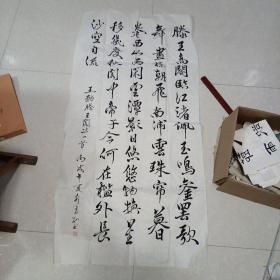 滕王高閣臨江渚珮玉鳴鑾罷歌
舞畫棟朝飛南浦雲珠帘暮
捲西山雨閑雲潭影日悠悠物換星
移幾度秋閣中帝子今何在檻外長
江空自流
王勃滕王閣詩一首 丙戌年夏